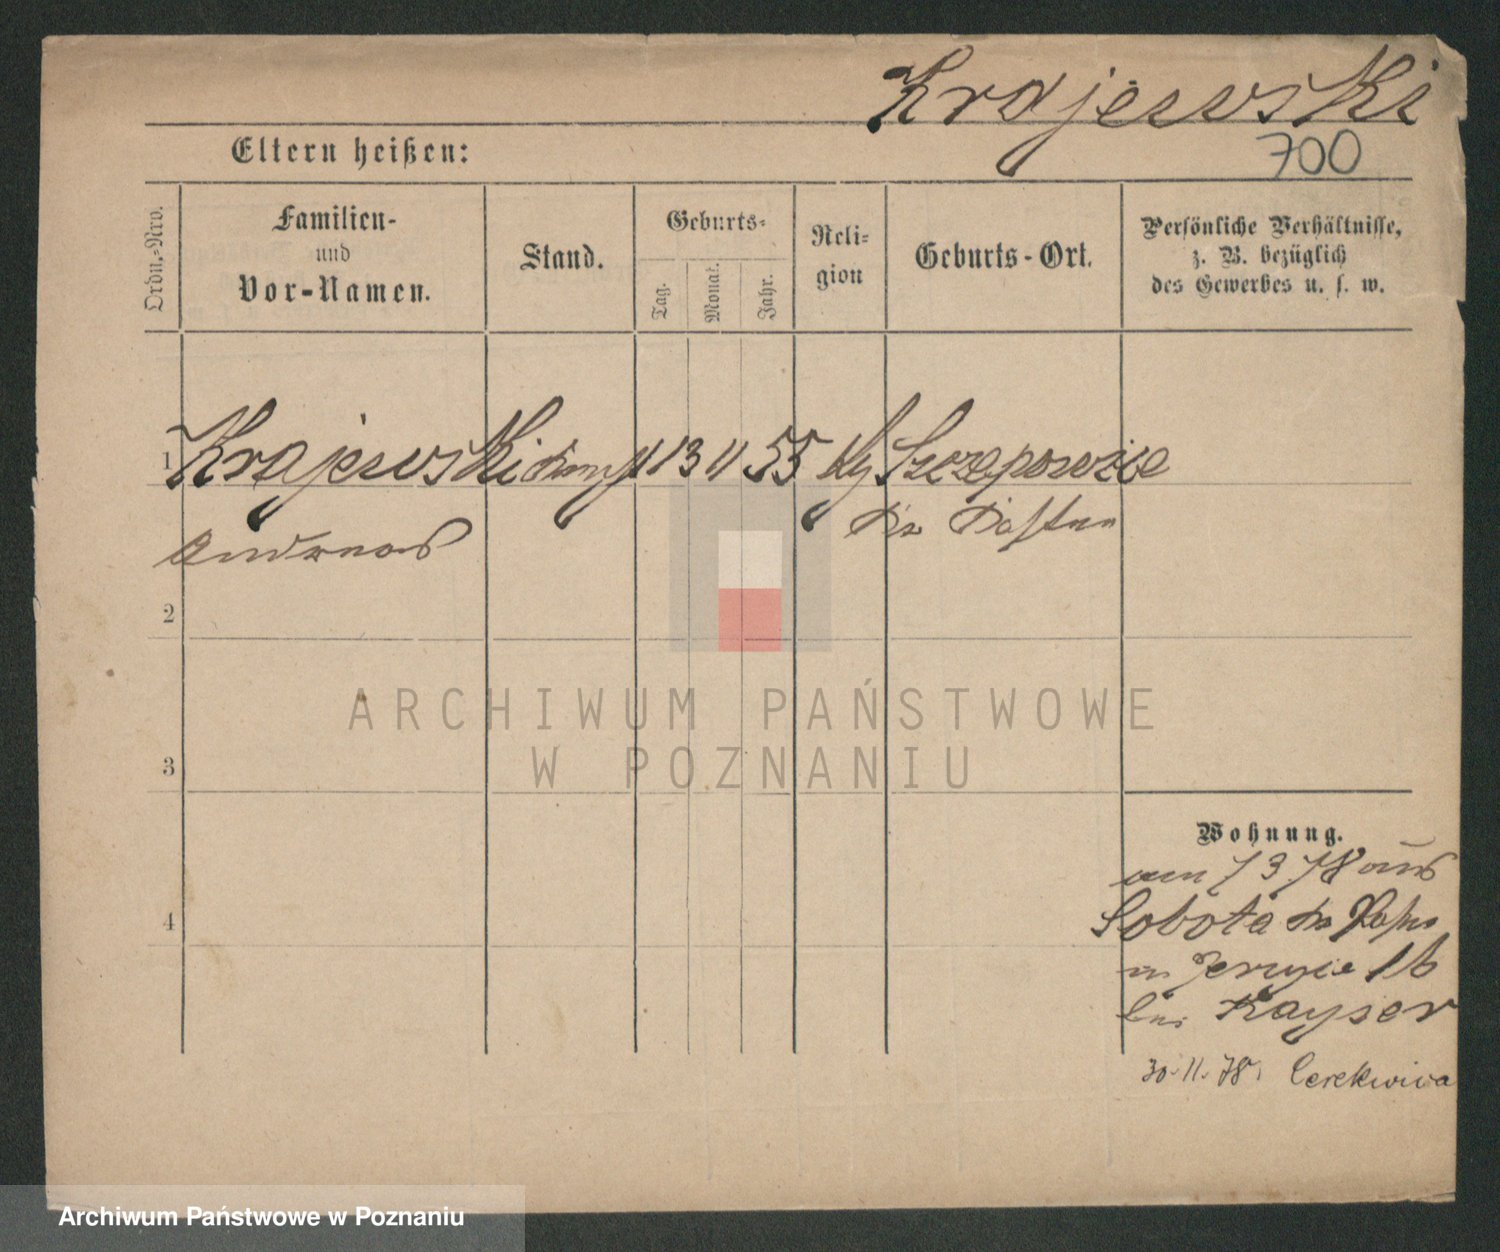 Krajewski
Eltern heißen:
700
Ordn.-Nro.
Familien-
und
Vor-Namen.
Stand.
Geburts-
Tag.
Monat.
Jahr.
Reli-
gion
Geburts-Ort.
Persönliche Verhältnisse,
z. B. bezüglich
des Gewerbes u. s. w.
1 Krajewski 13 11 55 Szczepowice
Andreas Kr Kosten
2
3
4
Wohnung.
am 1 3 78 aus
Sobota Kr Posen
in Jerzyce 16
bei Kayser
30.11.78. Cerekwica
ARCHIWUM PAŃSTWOWE
W POZNANIU
Archiwum Państwowe w Poznaniu